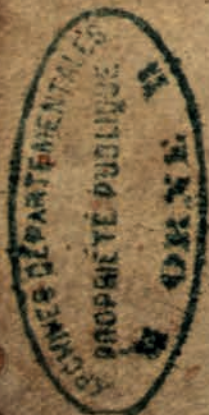 ARCHIVES DÉPARTEMENTALES
PROPRIÉTÉ PUBLIQUE
ORNE